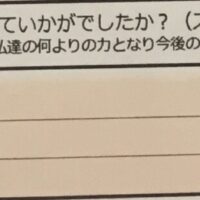 ていかがでしたか？（ス
私達の何よりの力となり今後の